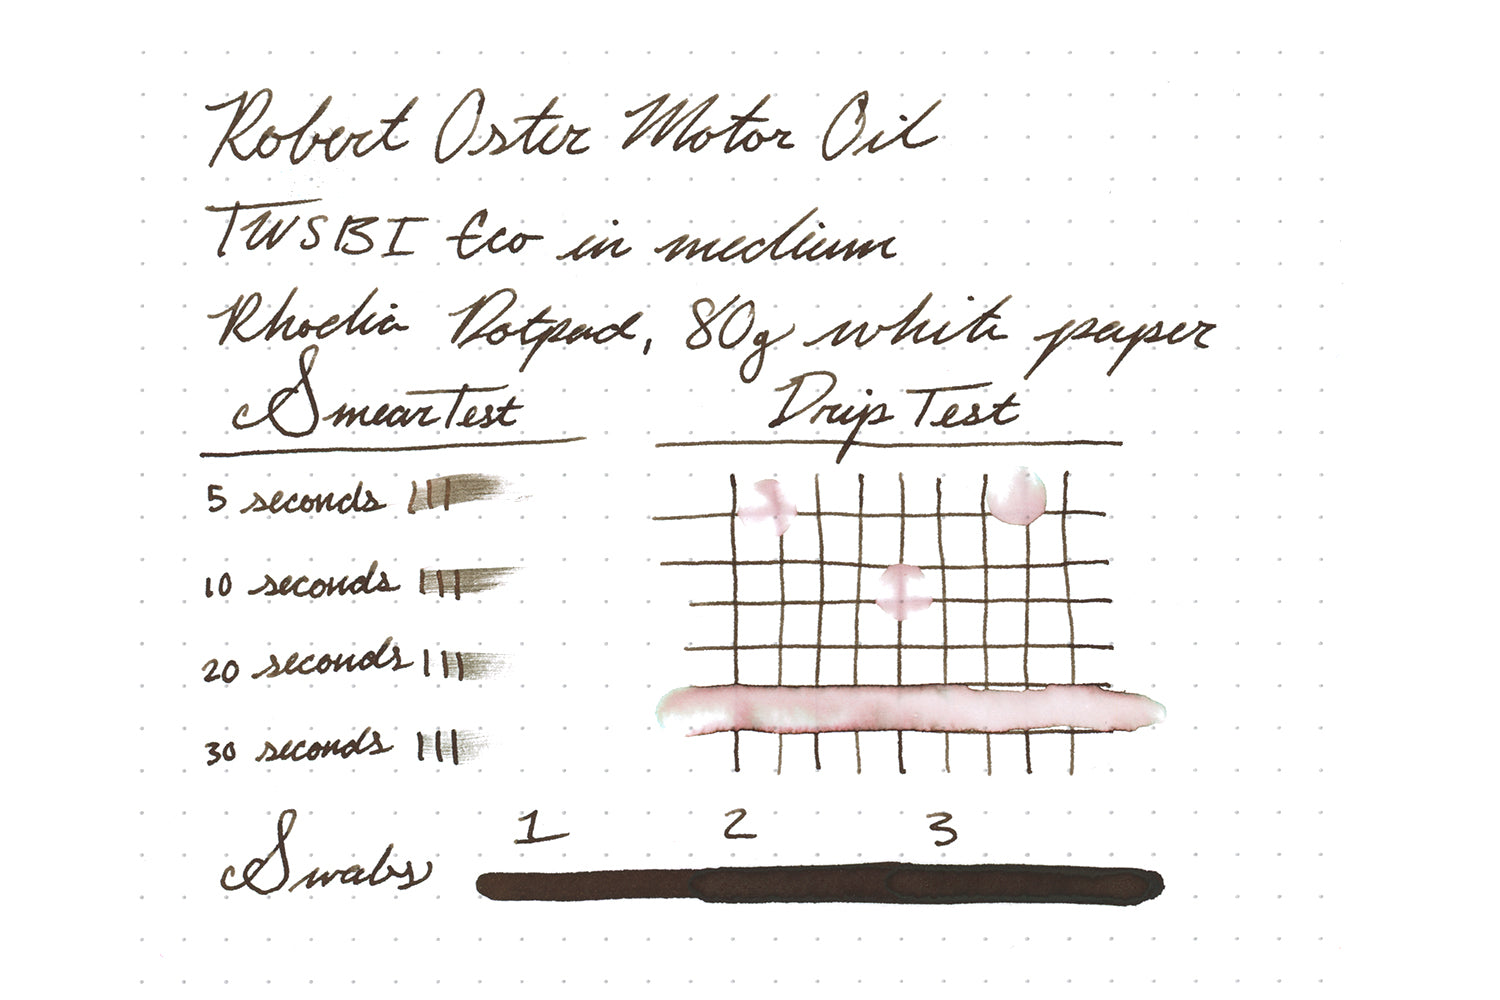 Robert Oster Motor Oil
TWSBI Eco in medium
Rhodia Dotpad, 80g white paper
Smear Test
Drip Test
5 seconds
10 seconds
20 seconds
30 seconds
1 2 3
Swabs